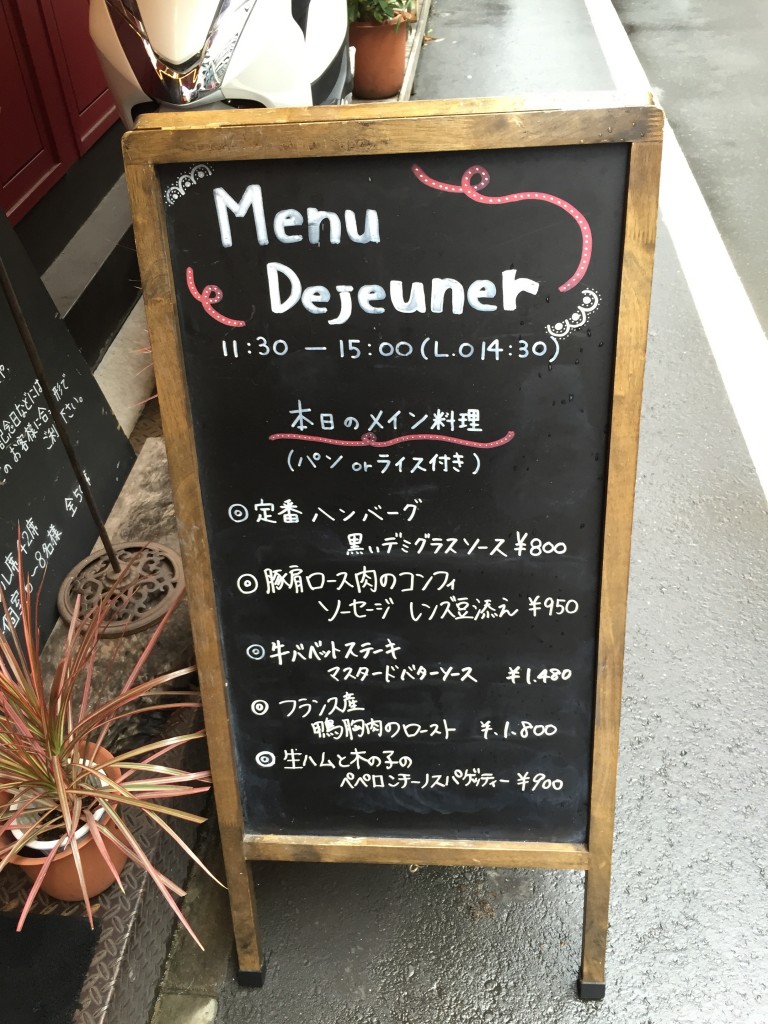 Menu
Dejeuner
11:30 — 15:00 (L.O 14:30)
本日のメイン料理
(パン or ライス付き)
◎定番 ハンバーグ
黒いデミグラスソース ¥800
◎豚肩ロース肉のコンフィ
ソーセージ レンズ豆添え ¥950
◎牛バベットステーキ
マスタードバターソース ¥1.480
◎フランス産
鴨胸肉のロースト ¥.1.800
◎生ハムと木の子の
ペペロンチーノスパゲッティー ¥900
記念日などには
のお客様に合
形で
ご利
ださい。